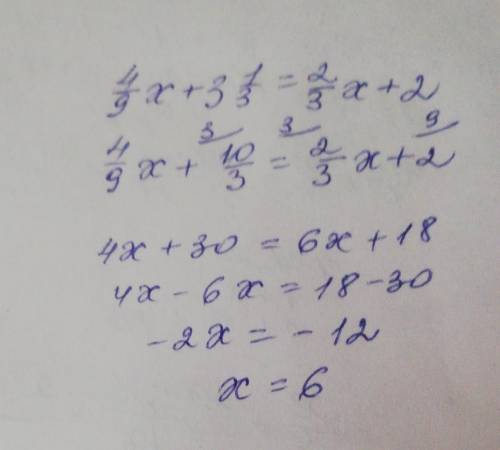 4/9 x + 3 1/3 = 2/3 x + 2
4/9 x + 10/3 ³ = 2/3 ³ x + 2 ⁹
4x + 30 = 6x + 18
4x - 6x = 18 - 30
-2x = -12
x = 6